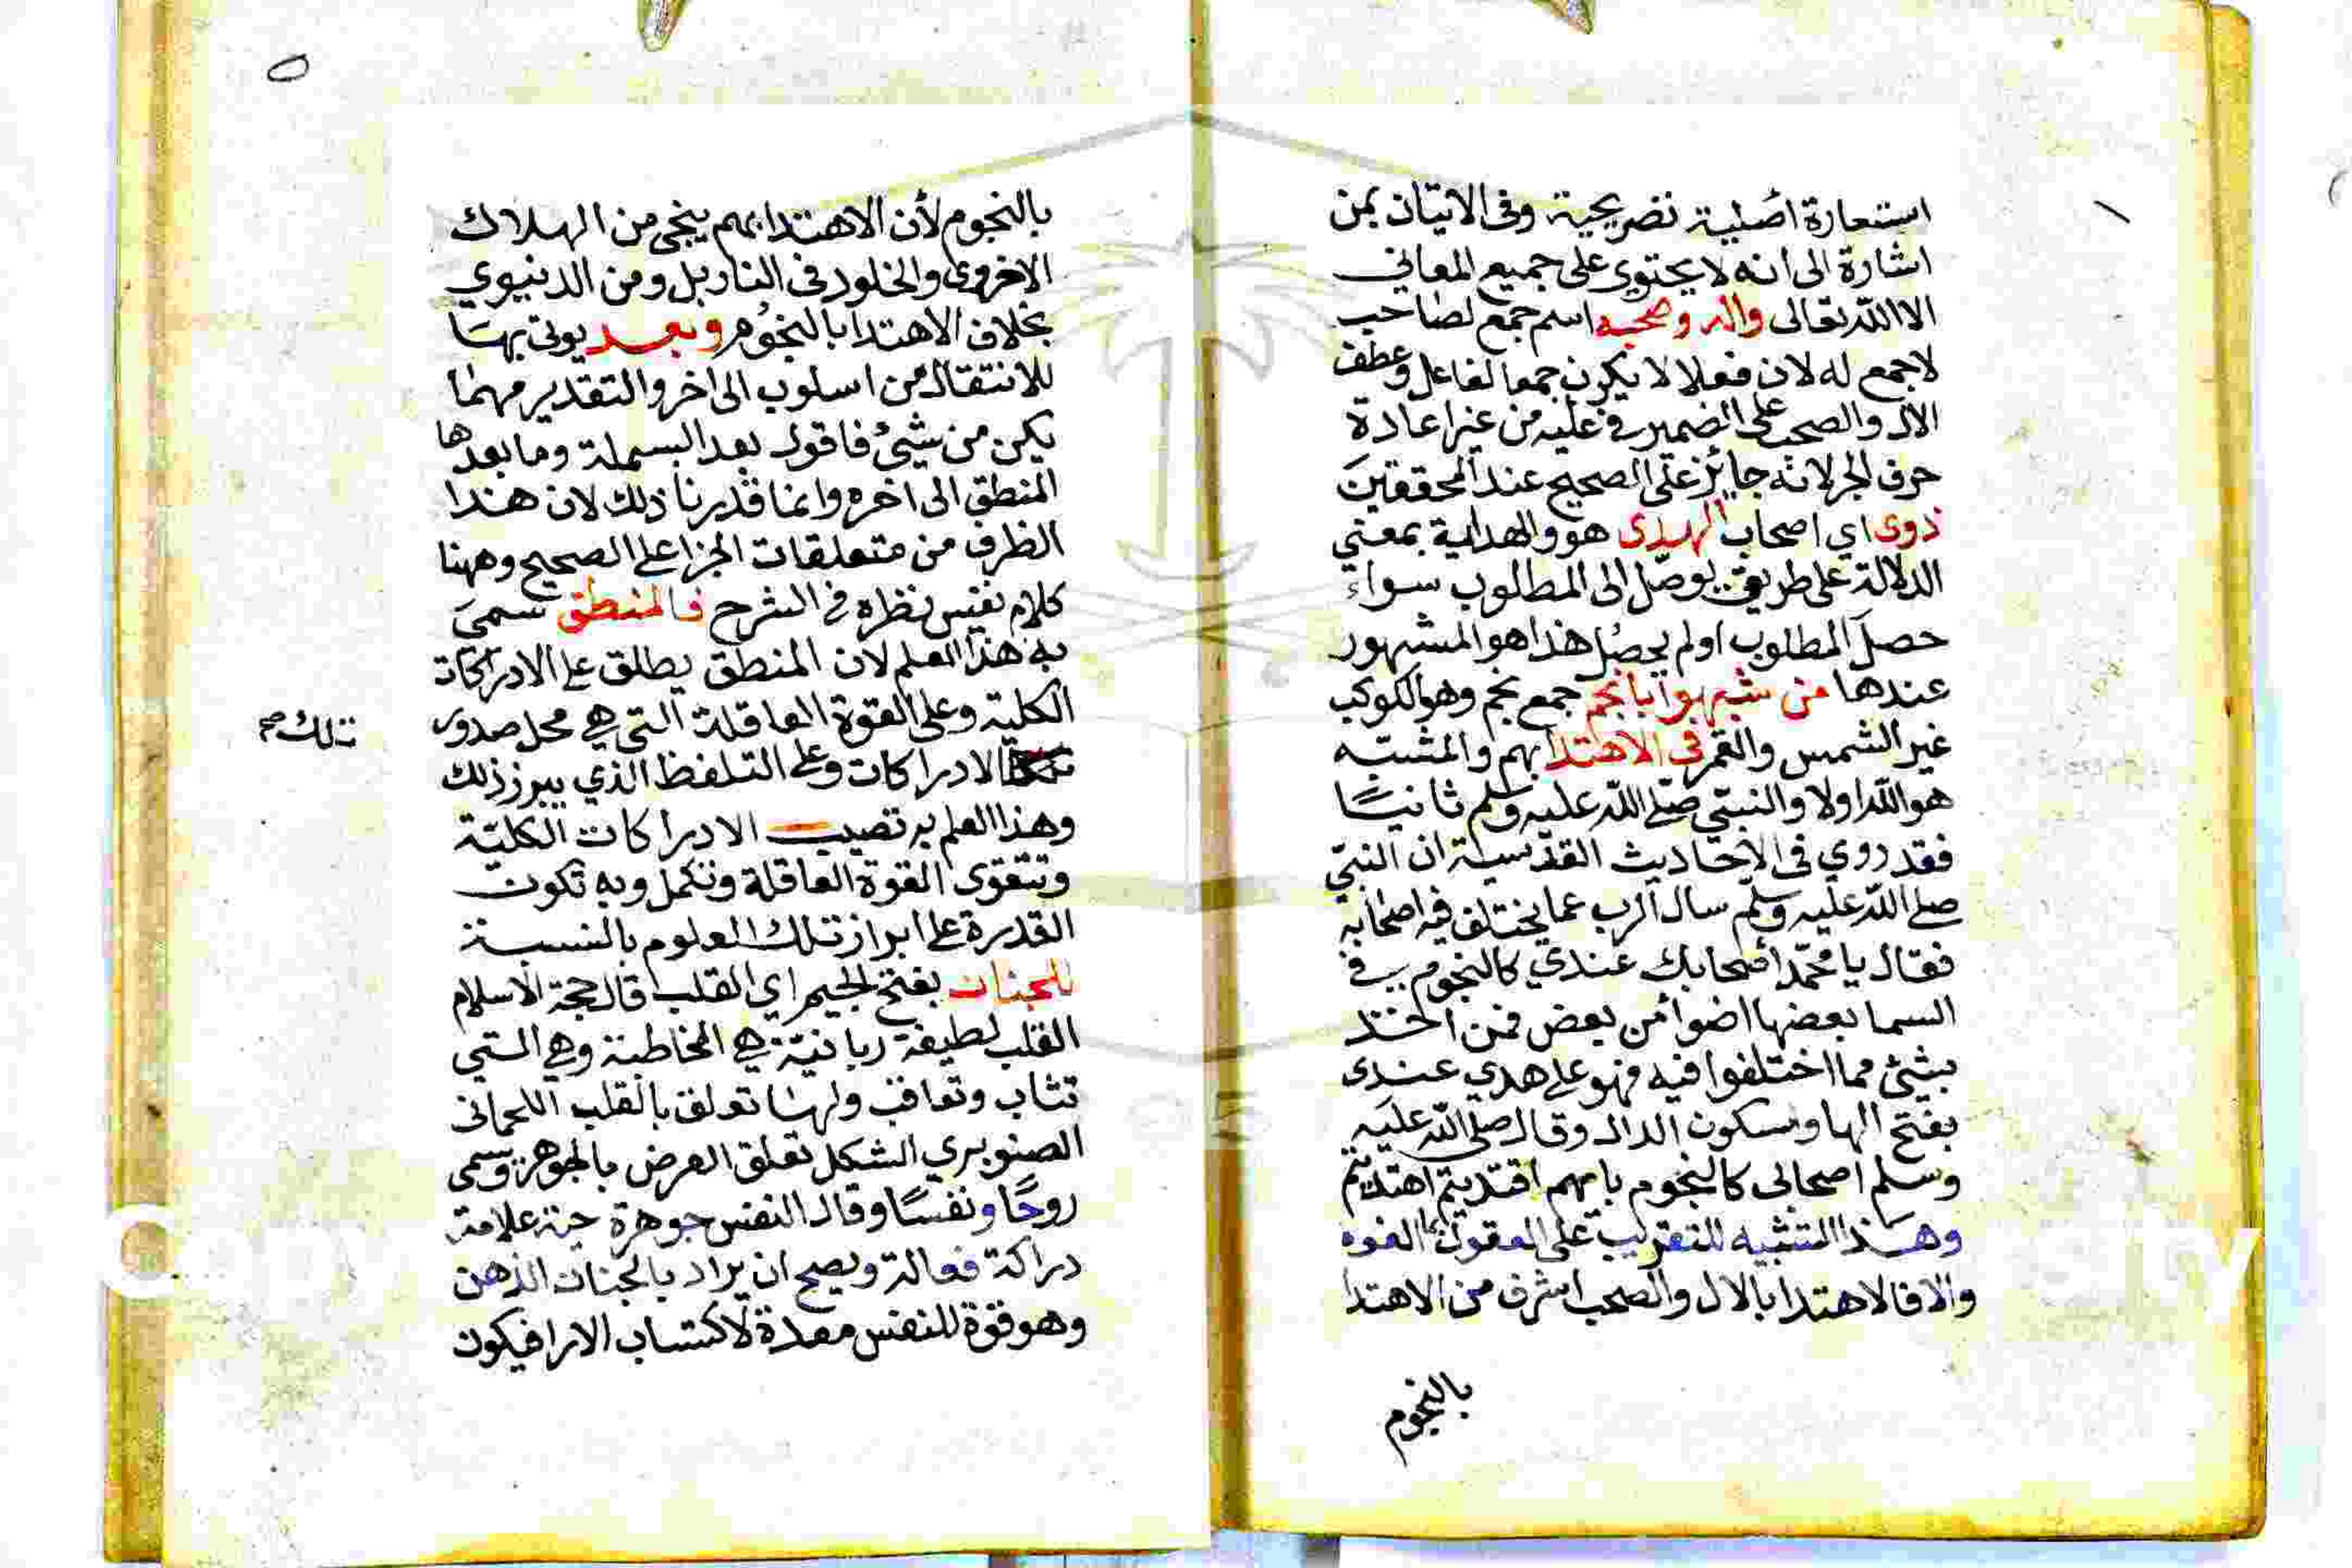 استعارة اصلية تصريحية وفى الاتيان بمن
اشارة الى انه لا يحتوى على جميع المعاني
الا الله تعالى واله وصحبه اسم جمع لصاحب
لا جمع له لان فعلا لا يكون جمعا لفاعل وعطف
الال والصحب على الضمير في عليه من غير اعادة
حرف الجر لانه جايز على الصحيح عند المحققين
ذوى اي اصحاب الهدى هو والهداية بمعني
الدلالة على طريق يوصل الى المطلوب سواء
حصل المطلوب او لم يحصل هذا هو المشهور
عندها من شبهوا بانجم جمع نجم وهو الكوكب
غير الشمس والقمر فى الاهتدا بهم والمشبه
هو الله اولا والنبي صلى الله عليه وسلم ثانيًا
فقد روي فى الاحاديث القدسية ان النبي
صلى الله عليه وسلم سال الرب عما يختلف فيه اصحابه
فقال يا محمد اصحابك عندي كالنجوم في
السما بعضها اضوا من بعض فمن اخذ
بشئ مما اختلفوا فيه فهو على هدي عندى
بفتح الها وسكون الدال وقال صلى الله عليه
وسلم اصحابى كالنجوم بايهم اقتديتم اهتديتم
وهذا التشبيه للتقريب على العقول
والا فالاهتدا بالال والصحب اشرف من الاهتدا
بالنجوم
بالنجوم لأن الاهتدا بهم ينجى من الهلاك
الاخروى والخلود فى النار بل ومن الدنيوي
بخلاف الاهتدا بالنجوم وبعد يوتى بها
للانتقال من اسلوب الى اخر والتقدير مهما
يكن من شيئ فاقول بعد البسملة وما بعدها
المنطق الى اخره وانما قدرنا ذلك لان هذا
الظرف من متعلقات الجزا على الصحيح وههنا
كلام نفيس نظره في الشرح فالمنطق سمى
به هذا العلم لان المنطق يطلق على الادراكات
الكلية وعلى القوة العاقلة التى هي محل صدور
تلك صح
الادراكات وعلى التلفظ الذي يبرز ذلك
وهذا العلم به تصيب الادراكات الكلية
وتتقوى القوة العاقلة وتكمل وبه تكون
القدرة على ابراز تلك العلوم بالنسبة
للجنان بفتح الجيم اي القلب قال حجة الاسلام
القلب لطيفة ربانية هي المخاطبة وهي التي
تثاب وتعاقب ولها تعلق بالقلب اللحمانى
الصنوبري الشكل تعلق العرض بالجوهر وتسمى
روحًا ونفسًا وقال النفس جوهرة حية علامة
دراكة فعالة ويصح ان يراد بالجنان الذهن
وهو قوة للنفس معدة لاكتساب الارا فيكون